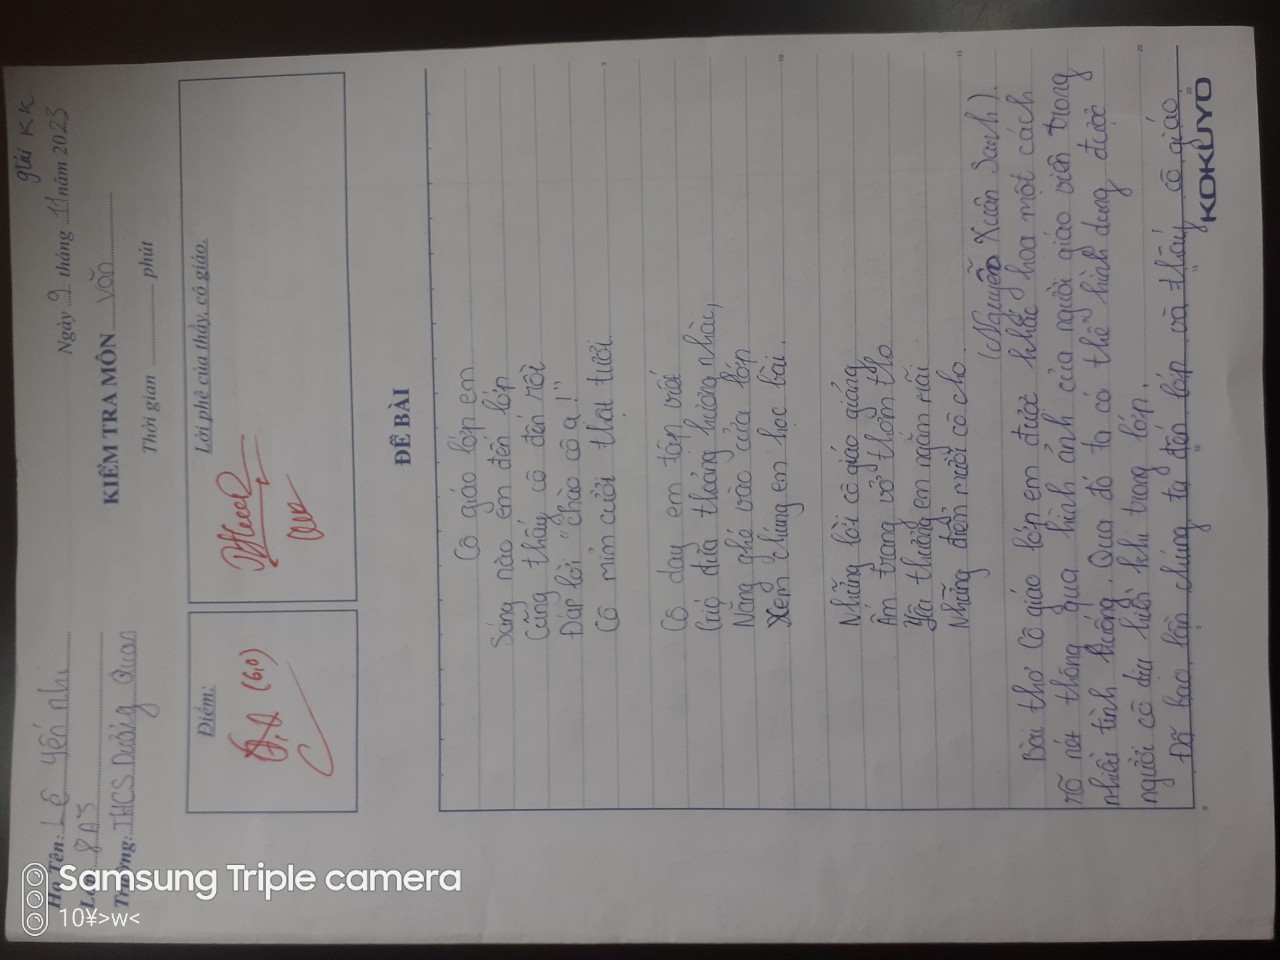 giải KK
Họ Tên: Lê Yến Nhi
Ngày 9 tháng 11 năm 2023
Lớp: 8A3
KIỂM TRA MÔN Văn
Trường: THCS Dương Quan
Thời gian phút
Điểm:
Lời phê của thầy, cô giáo.
(6,0)
ĐỀ BÀI
Cô giáo lớp em
Sáng nào em đến lớp
Cũng thấy cô đến rồi
Đáp lời "chào cô ạ!"
Cô mỉn cười thật tươi
Cô dạy em tập viết
Gió đưa thoảng hương nhài,
Nắng ghé vào cửa lớp
Xem chúng em học bài.
Những lời cô giáo giảng
Ấm trang vở thơm tho
Yêu thương em ngắm mãi
Những điểm mười cô cho.
(Nguyễn Xuân Sanh).
Bài thơ Cô giáo lớp em được khắc họa một cách
rõ nét thông qua hình ảnh của người giáo viên trong
nhiều tình huống. Qua đó ta có thể hình dung được
người cô dịu hiền khi trong lớp.
Đã bao lần chúng ta đến lớp và thầy cô giáo
KOKUYO
Samsung Triple camera
10¥>w<